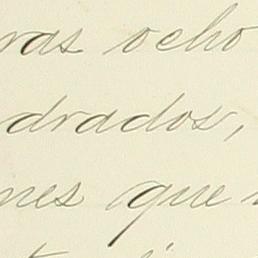 ras ocho
drados,
nes que